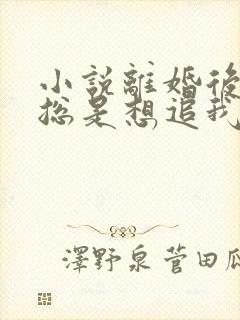 小說離婚後
總是想追我
澤野泉菅田瓜